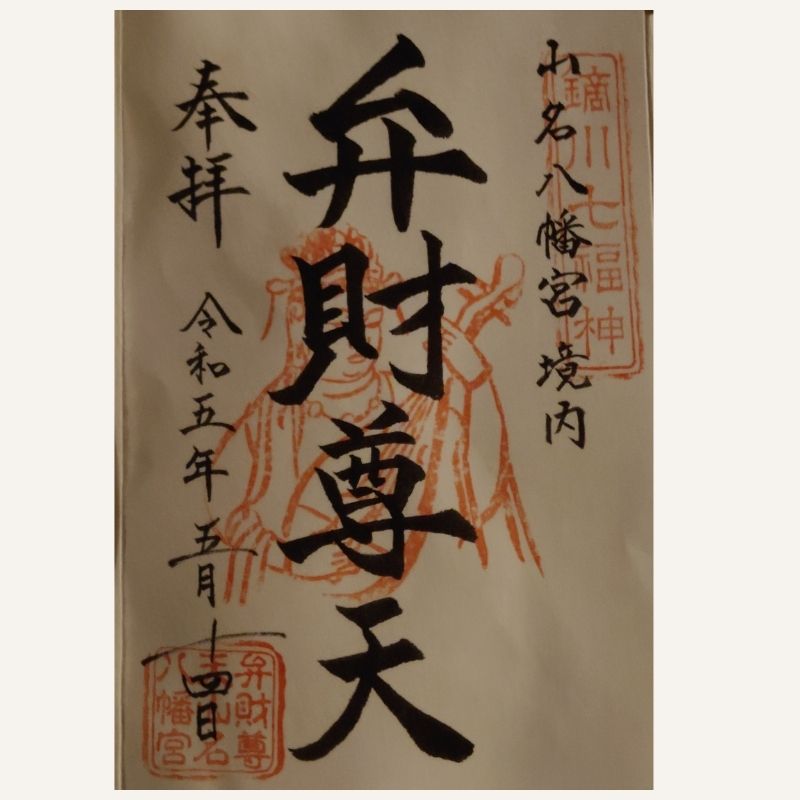 鏑川七福神
山名八幡宮境内
弁財尊天
奉拝 令和五年 五月十四日
弁財尊
天山名
八幡宮